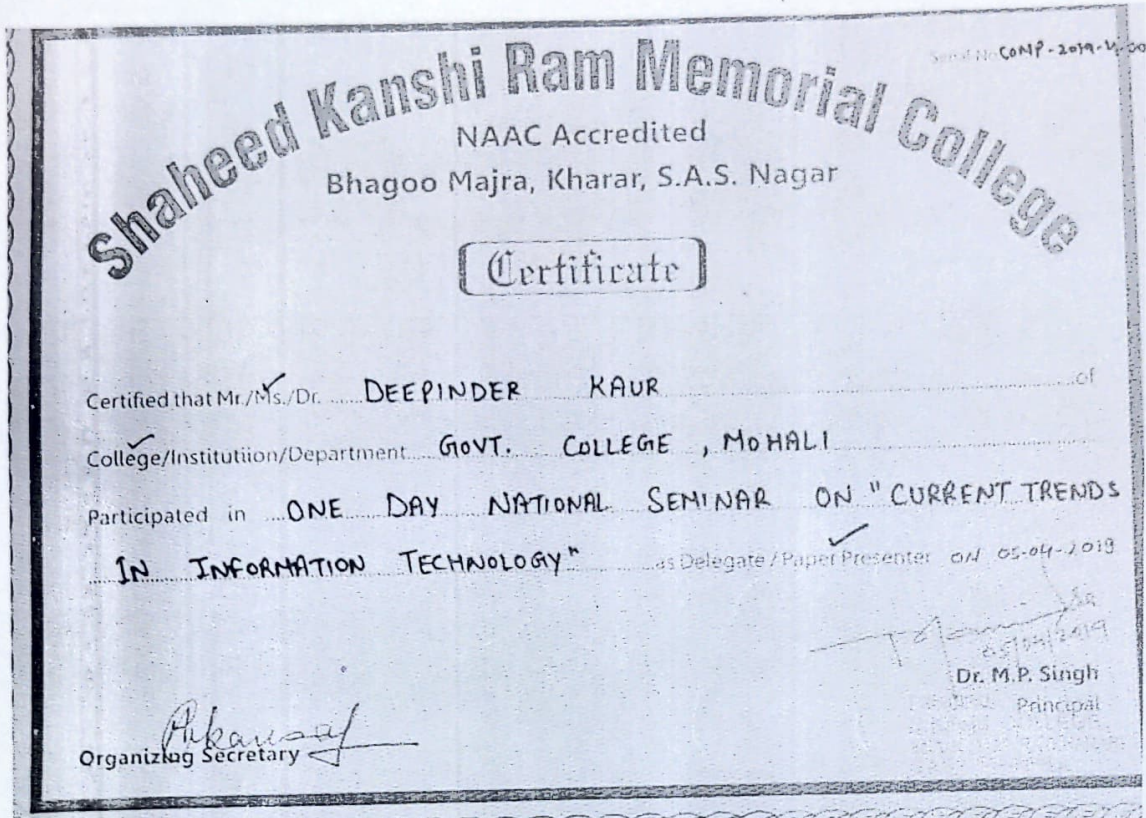 Serial No. COMP-2019-
Shaheed Kanshi Ram Memorial College
NAAC Accredited
Bhagoo Majra, Kharar, S.A.S. Nagar
Certificate
Certified that Mr./Ms./Dr. DEEPINDER KAUR of
College/Institutiion/Department GOVT. COLLEGE, MOHALI
Participated in ONE DAY NATIONAL SEMINAR ON "CURRENT TRENDS
IN INFORMATION TECHNOLOGY" as Delegate/Paper Presenter ON 05-04-2019
05/04/2019
Dr. M.P. Singh
Principal
Organizing Secretary